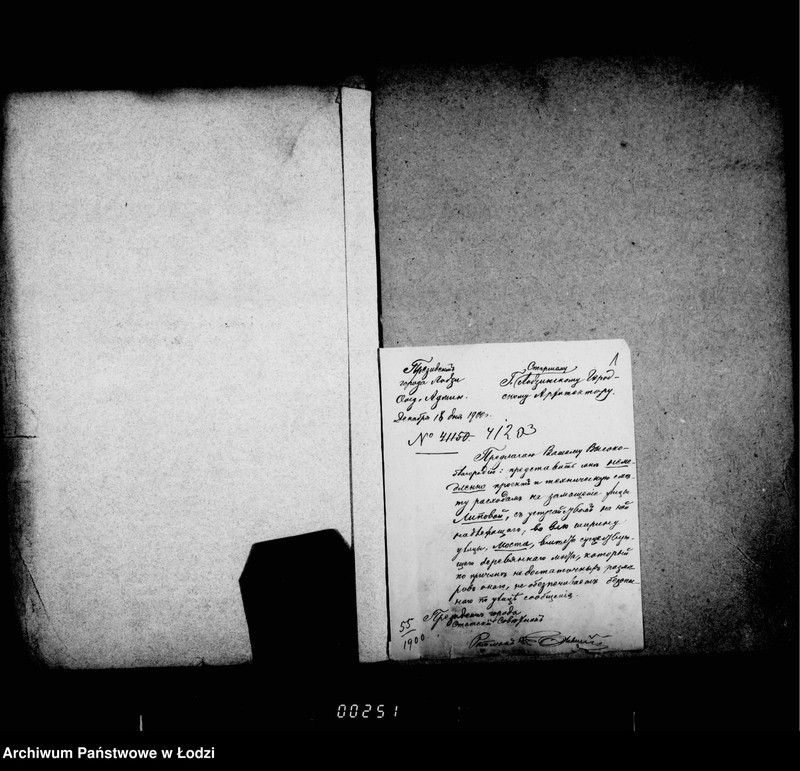 1
Президентъ
города Лодзи
Отд. Админ.
Декабря 18 дня 1900 г.
№ 41150 41203
Старшему
Г. Лодзинскому Город-
скому Архитектору.
Предлагаю Вашему Высоко-
благородію представить мнѣ неме-
дленно проектъ и техническую смѣ-
ту расходамъ на замощеніе улицы
Липовой, съ устройствомъ на ней
надлежащаго, во всю ширину
улицы, моста, вмѣсто существую-
щаго деревяннаго моста, который
по причинѣ недостаточныхъ размѣ-
ровъ онаго, не обезпечиваетъ безопас-
наго по улицѣ сообщенія.
Президентъ города
Статскій Совѣтникъ
55
1900
00251
Archiwum Państwowe w Łodzi